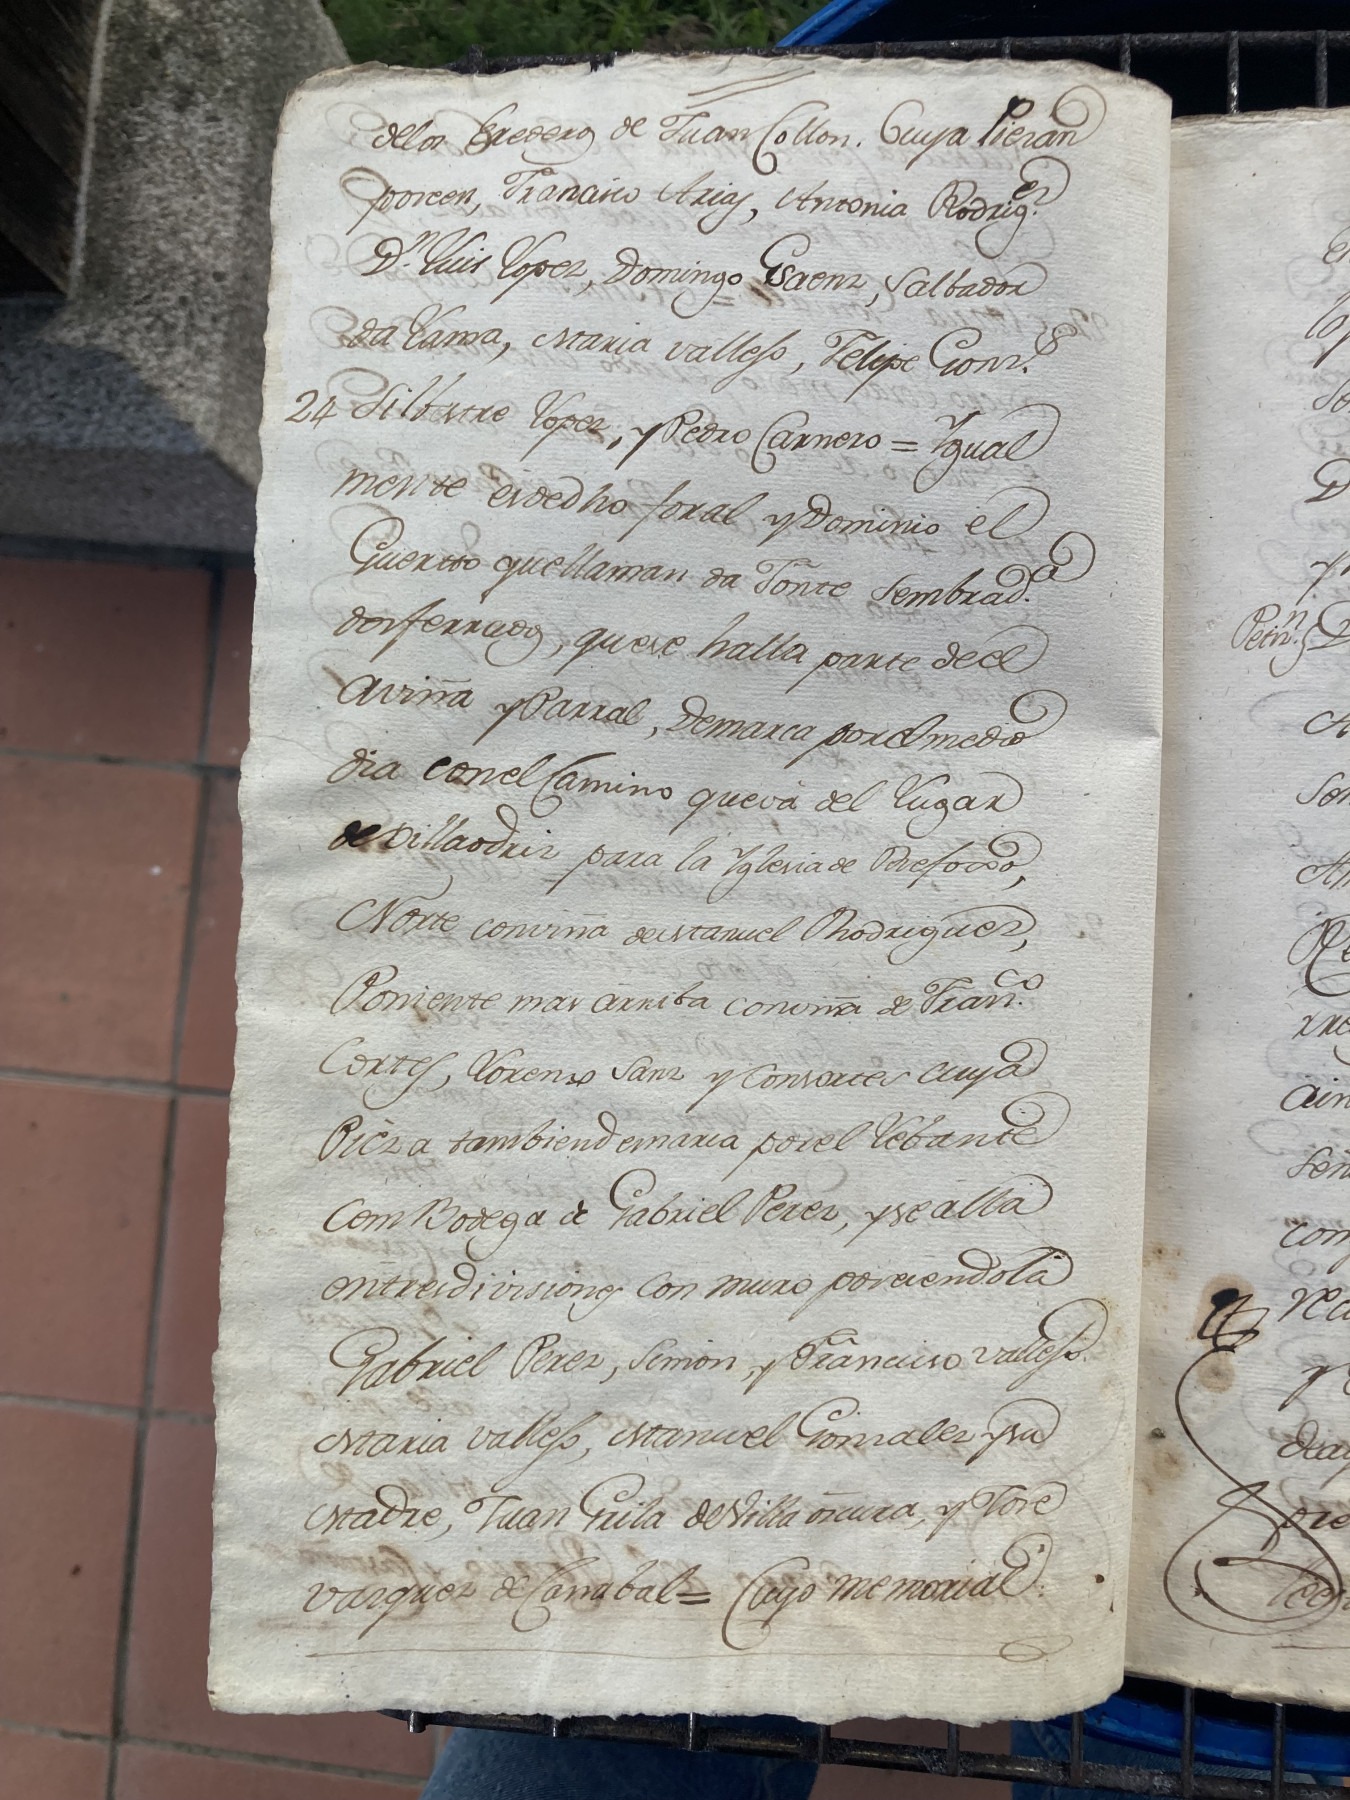 delos Erederos de Juan Collon. Cuya Piezan
poseen, Francisco Arias, Antonia Rodrig.es
D.n Luis Lopez, Domingo Saenz, Salbador
da Lama, Maria Vallejo, Felipe Gonz.s
24 Silbestre Lopez, y Pedro Carnero = Ygual
mente esdedho foral y Dominio el
Guerto quellaman da Fonte Sembrad.a
dosferrados, quese halla parte deel
aviña y Parral, Demarca porel medio
dia conel Camino queva del Lugar
de Villaodriz para la Yglesia de
Norte conviña de Manuel Rodriguez,
Poniente mas arriba conviña de Fran.co
Cortes, Lorenzo Sanz y Consortes cuya
Pieza tambiendemarca porel Lebante
Com Bodega de Gabriel Perez, yse alla
entresdivisiones con muro poseiendola
Gabriel Perez, Simon, y Francisco Vallejo.
Maria Vallejo, Manuel Gonzalez ysu
Madre, Juan Guila de Villa oscura, y Jose
Vazquez de Carrabal = Cuyo memorial.
Petn.n